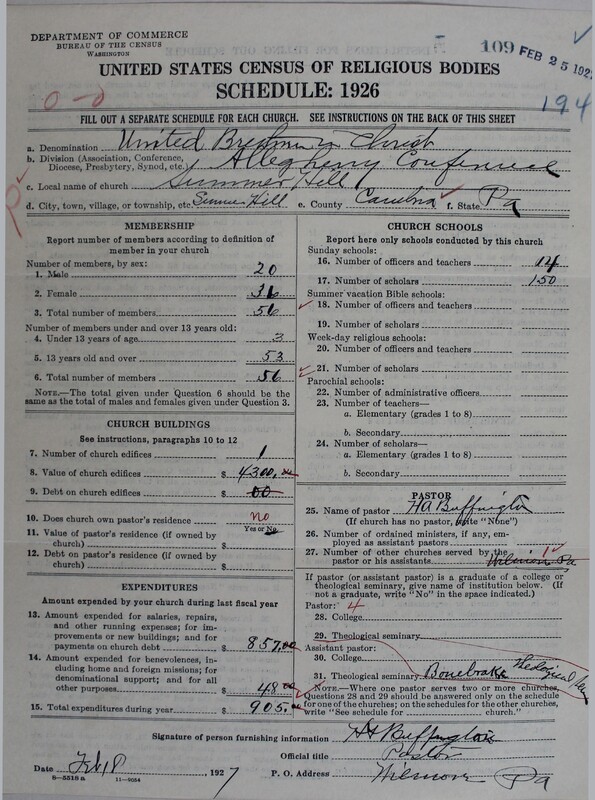 DEPARTMENT OF COMMERCE
BUREAU OF THE CENSUS
WASHINGTON
109 FEB 25 192
UNITED STATES CENSUS OF RELIGIOUS BODIES
SCHEDULE: 1926
0-0
194
FILL OUT A SEPARATE SCHEDULE FOR EACH CHURCH. SEE INSTRUCTIONS ON THE BACK OF THIS SHEET
a. Denomination United Brethren in Christ
b. Division (Association, Conference, Diocese, Presbytery, Synod, etc.) Allegheny Conference
c. Local name of church Summer Hill
d. City, town, village, or township, etc. Summer Hill e. County Cambria f. State Pa
MEMBERSHIP
Report number of members according to definition of
member in your church
Number of members, by sex:
1. Male 20
2. Female 36
3. Total number of members 56
Number of members under and over 13 years old:
4. Under 13 years of age 3
5. 13 years old and over 53
6. Total number of members 56
NOTE.—The total given under Question 6 should be
same as the total of males and females given under Question 3.
CHURCH BUILDINGS
See instructions, paragraphs 10 to 12
7. Number of church edifices 1
8. Value of church edifices $ 4300.00
9. Debt on church edifices $ 00
10. Does church own pastor's residence no
Yes or No
11. Value of pastor's residence (if owned by
church) $
12. Debt on pastor's residence (if owned by
church) $
EXPENDITURES
Amount expended by your church during last fiscal year
13. Amount expended for salaries, repairs,
and other running expenses; for im-
provements or new buildings; and for
payments on church debt $ 857.00
14. Amount expended for benevolences, in-
cluding home and foreign missions; for
denominational support; and for all
other purposes $ 48.00
15. Total expenditures during year $ 905.
CHURCH SCHOOLS
Report here only schools conducted by this church
Sunday schools:
16. Number of officers and teachers 14
17. Number of scholars 150
Summer vacation Bible schools:
18. Number of officers and teachers
19. Number of scholars
Week-day religious schools:
20. Number of officers and teachers
21. Number of scholars
Parochial schools:
22. Number of administrative officers
23. Number of teachers—
a. Elementary (grades 1 to 8)
b. Secondary
24. Number of scholars—
a. Elementary (grades 1 to 8)
b. Secondary
PASTOR
25. Name of pastor HA Buffington
(If church has no pastor, write "None")
26. Number of ordained ministers, if any, em-
ployed as assistant pastors
27. Number of other churches served by the 1
pastor or his assistants Wilmore Pa
If pastor (or assistant pastor) is a graduate of a college or
theological seminary, give name of institution below. (If
not a graduate, write "No" in the space indicated.)
Pastor: 4
28. College
29. Theological seminary
Assistant pastor:
30. College
31. Theological seminary Bonebrake Theological Sem
NOTE.—Where one pastor serves two or more churches,
Questions 28 and 29 should be answered only on the schedule
for one of the churches; on the schedules for the other churches,
write "See schedule for church."
Signature of person furnishing information HA Buffington
Official title Pastor
Date Feb 18, 1927 P. O. Address Wilmore Pa
8-5518a 11-9054